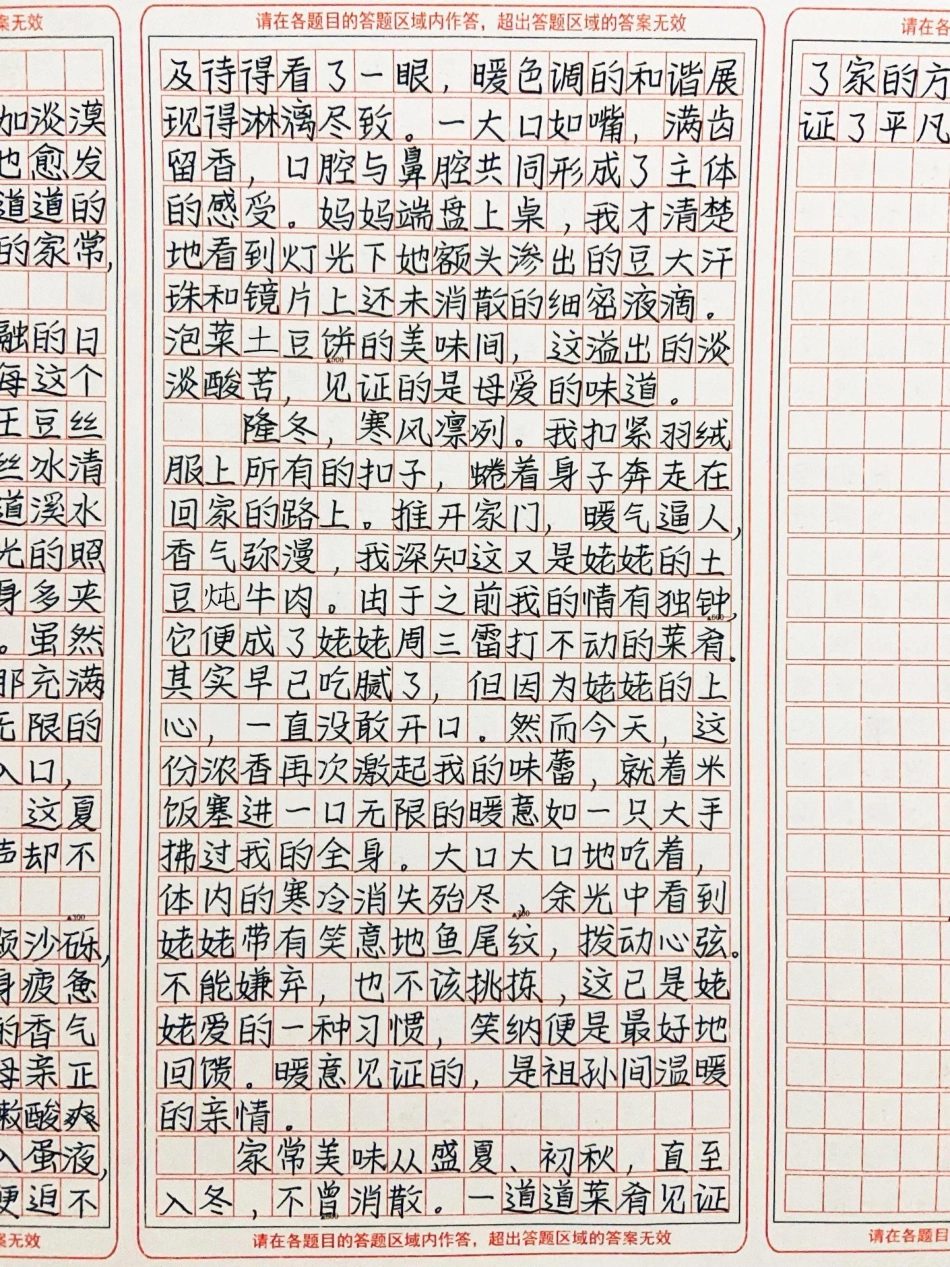 案无效
加淡漠
也愈发
道道的
的家常,
融的日
每这个
土豆丝
丝冰清
道溪水
光的照
身多夹
。虽然
那充满
无限的
入口,
这夏
声却不
▲300
颗沙砾,
身疲惫
的香气
母亲正
嫩酸爽
入蛋液,
便迫不
案无效
请在各题目的答题区域内作答，超出答题区域的答案无效
及待得看了一眼，暖色调的和谐展
现得淋漓尽致。一大口如嘴，满齿
留香，口腔与鼻腔共同形成了主体
的感受。妈妈端盘上桌，我才清楚
地看到灯光下她额头渗出的豆大汗
珠和镜片上还未消散的细密液滴。
泡菜土豆饼的美味间，这溢出的淡
淡酸苦，见证的是母爱的味道。
隆冬，寒风凛冽。我扣紧羽绒
服上所有的扣子，蜷着身子奔走在
回家的路上。推开家门，暖气逼人，
香气弥漫，我深知这又是姥姥的土
豆炖牛肉。由于之前我的情有独钟，
它便成了姥姥周三雷打不动的菜肴。
其实早已吃腻了，但因为姥姥的上
心，一直没敢开口。然而今天，这
份浓香再次激起我的味蕾，就着米
饭塞进一口无限的暖意如一只大手
拂过我的全身。大口大口地吃着，
体内的寒冷消失殆尽、余光中看到
姥姥带有笑意地鱼尾纹，拨动心弦。
不能嫌弃，也不该挑拣，这已是姥
姥爱的一种习惯，笑纳便是最好地
回馈。暖意见证的，是祖孙间温暖
的亲情。
家常美味从盛夏、初秋，直至
入冬，不曾消散。一道道菜肴见证
请在各题目的答题区域内作答，超出答题区域的答案无效
请在各
了家的方
证了平凡
请在各题目